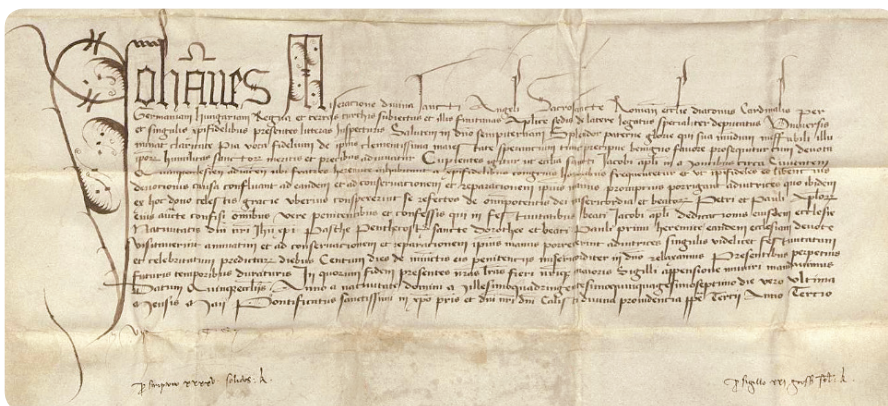 Johannes Miseracione divina Sancti Angeli Sacrosancte Roman ecclie diaconus Cardinalis per
Germaniam Hungariam Regna et terris subiectus et illis Aplice sedis de latere legatus specialiter deputatus Universis
et singulis xpifidelibus presentes litteras inspecturis Salutem in dno sempiternam Splendor paterne glorie qui sua mundum ineffabili illu
minat claritate Pia vota fidelium de ipius clementissima maiestate sperantium tunc precipue benigno favore prosequitur cum devota
ipor humilitas sanctor meritis et precibus adiuvatur Cupientes igitur ut ecclia sancti Jacobi apli circa Civitatem
fratres heremite inhabitant a xpifidelibus congruis honoribus frequentetur et ut xpifideles eo libenti ius
devotionis causa confluant ad eandem et ad conservacionem et reparacionem ipius manus promptius porrigant adiutrices quo ibidem
ex hoc dono celestis gracie uberius conspexerint se refectos de omnipotentis dei misericordia et beator Petri et Pauli Aplor
eius aucte confisi omnibus vere penitentibus et confessis qui in festivitatibus beati Jacobi apli dedicacionis eiusdem ecclesie
Nativitatis dni nri Jhu xpi Pasche Penthecostes Sancte Dorothee et beati Pauli primi heremite eandem ecclesiam devote
visitaverint annuatim et ad conservacionem et reparacionem ipius manus porrexerint adiutrices singulis videlicet festivitatum
et celebritatum predictarum diebus Centum dies de iniunctis eis penitenciis misericorditer in dno relaxamus Presentibus perpetuis
futuris temporibus duraturis In quorum fidem presentes nras lras fieri nrique maioris Sigilli appensione muniri mandavimus
Datum Quinqueeccliis Anno a nativitate domini Millesimoquadringentesimoquinquagesimoseptimo die vero ultima
Mensis Maii Pontificatus sanctissimi in xpo pris et dni nri dni Calisti divina providencia ppe Tercii Anno Tercio
p scriptura xxxx solidos
p sigillo xxi gross